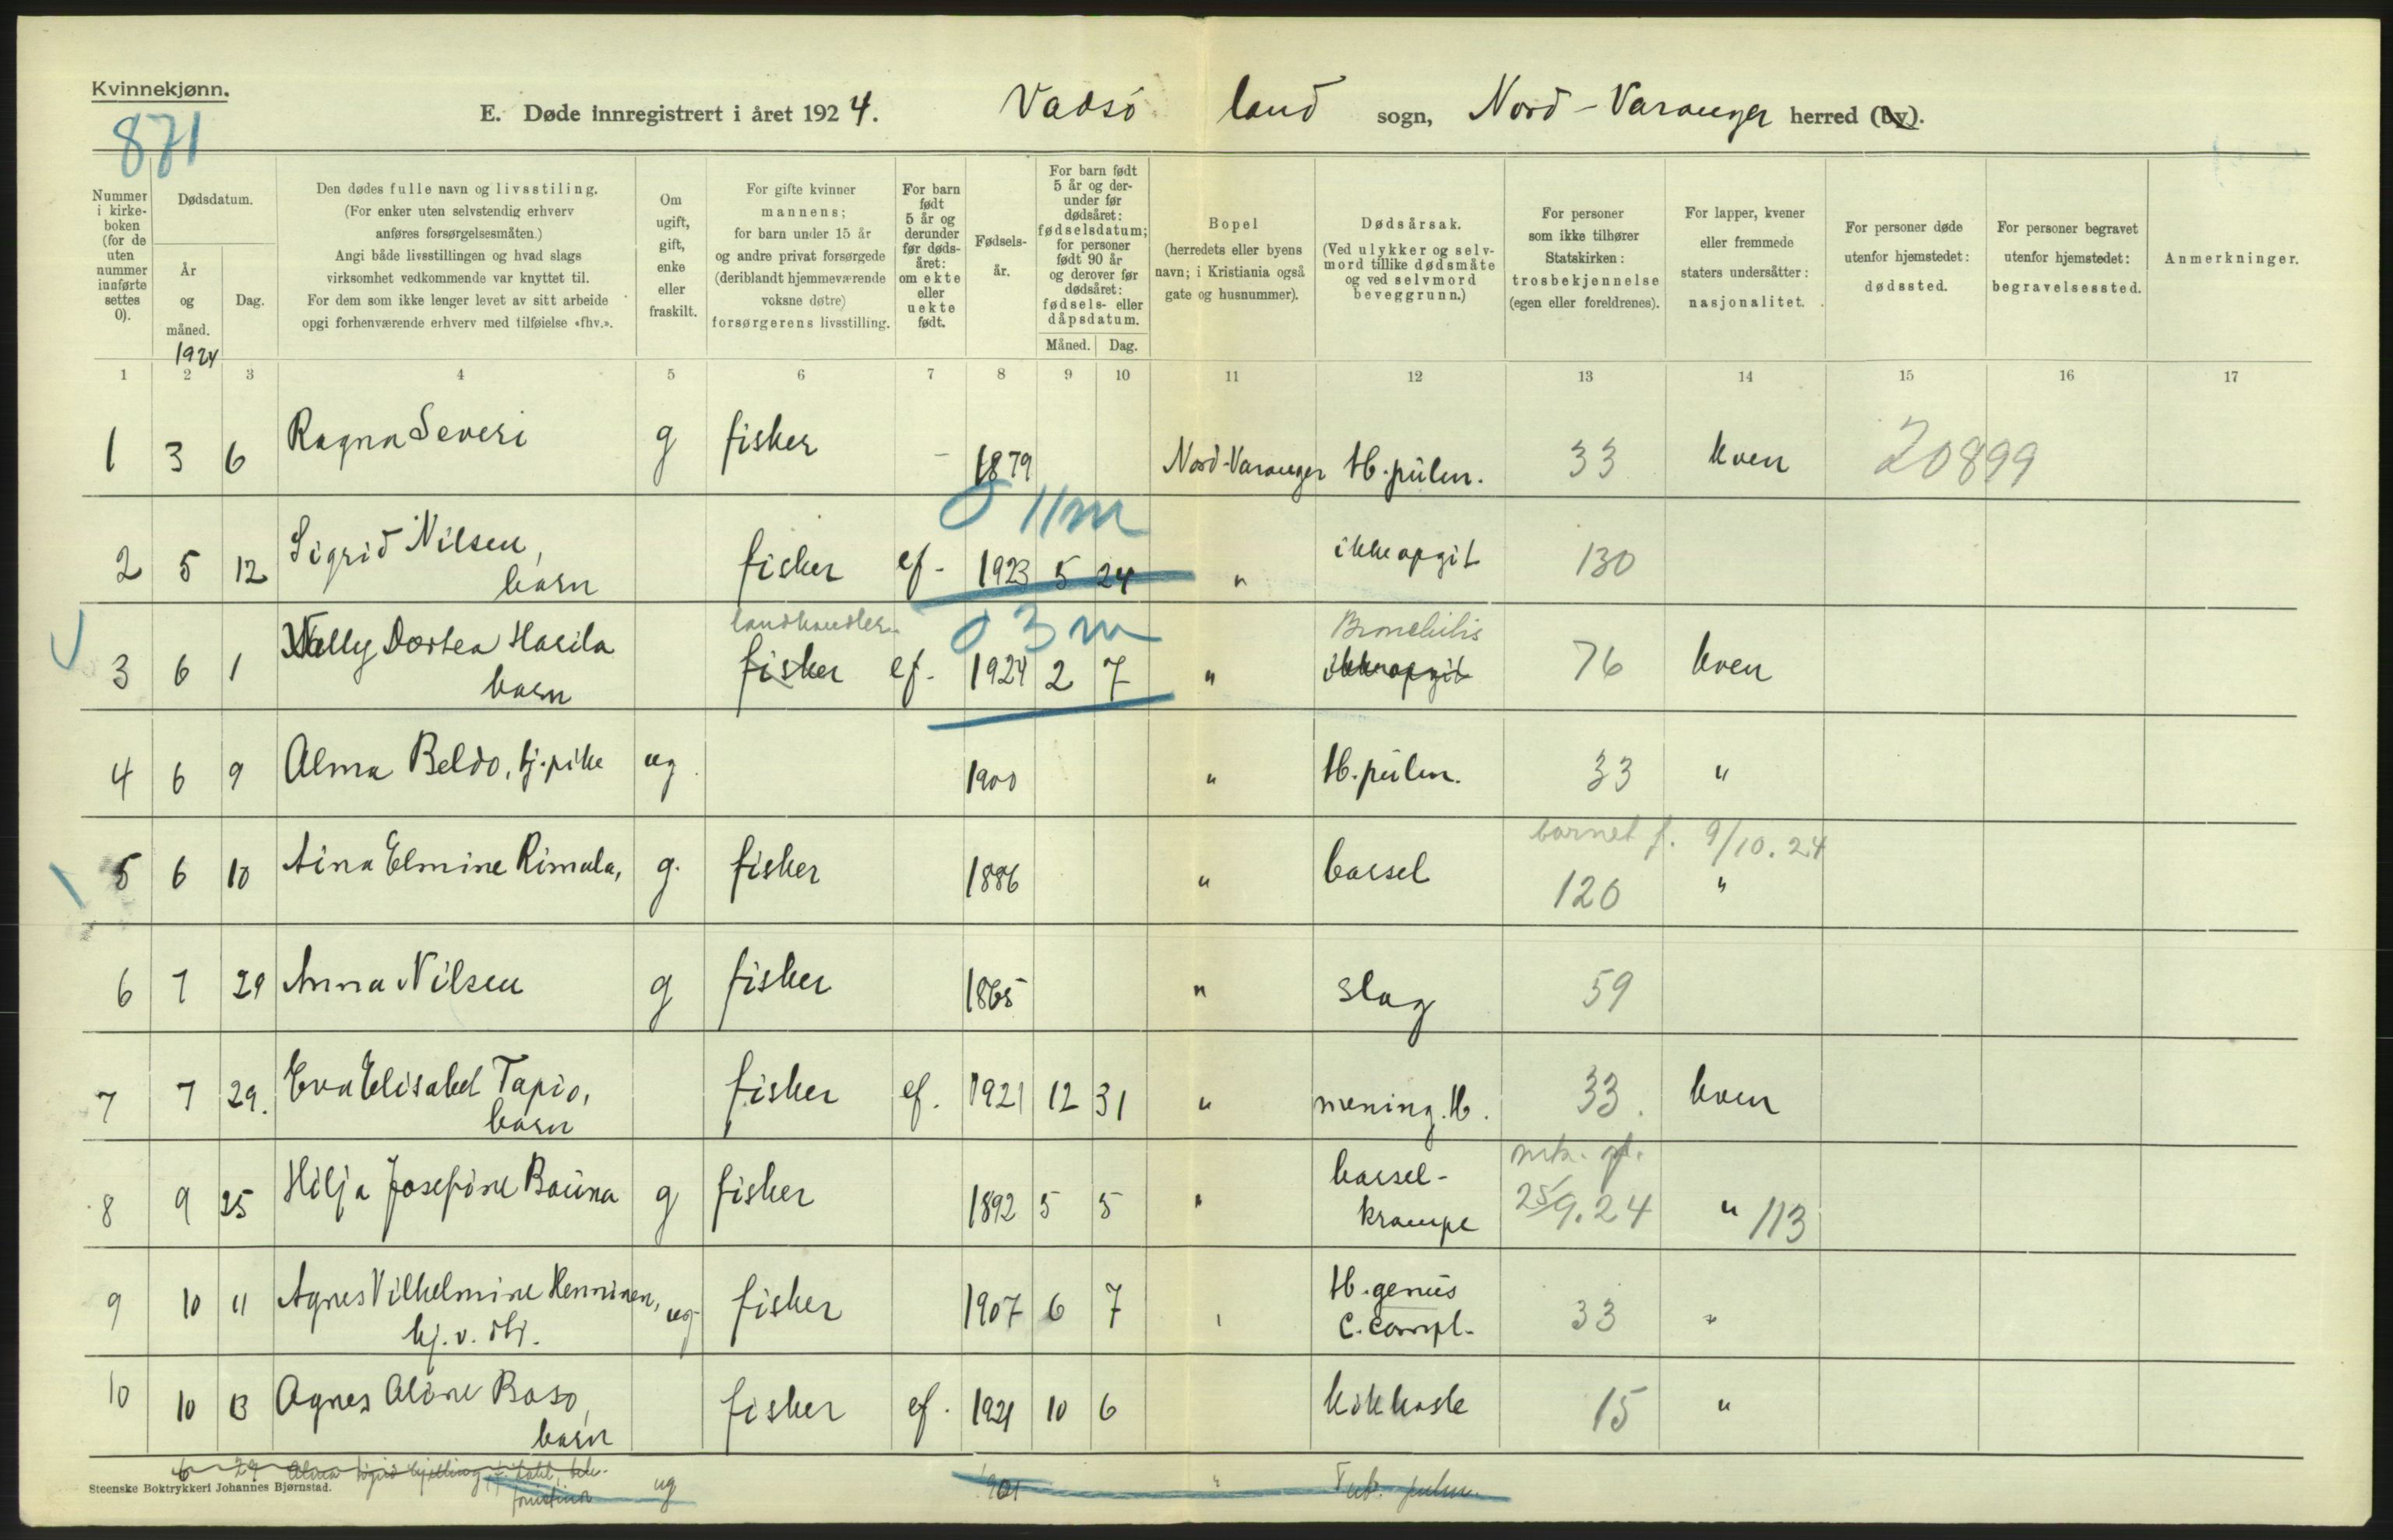 Kvinnekjønn.
871
E. Døde innregistrert i året 1924. Vadsö land sogn, Nord-Varanger herred (by).
Nummer i kirkeboken (for de uten nummer innførte settes 0).
Dødsdatum.
År og måned. 1924
Dag.
Den dødes fulle navn og livsstiling.
(For enker uten selvstendig erhverv
anføres forsørgelsesmåten.)
Angi både livsstillingen og hvad slags
virksomhet vedkommende var knyttet til.
For dem som ikke lenger levet av sitt arbeide
opgi forhenværende erhverv med tilføielse «fhv.».
Om ugift, gift, enke eller fraskilt.
For gifte kvinner
mannens;
for barn under 15 år
og andre privat forsørgede
(deriblandt hjemmeværende
voksne døtre)
forsørgerens livsstilling.
For barn født 5 år og derunder før dødsåret: om ekte eller uekte født.
Fødselsår.
For barn født 5 år og derunder før dødsåret: fødselsdatum; for personer født 90 år og derover før dødsåret: fødsels- eller dåpsdatum.
Måned. Dag.
Bopel
(herredets eller byens
navn; i Kristiania også
gate og husnummer).
Dødsårsak.
(Ved ulykker og selvmord tillike dødsmåte
og ved selvmord
beveggrunn.)
For personer
som ikke tilhører
Statskirken:
trosbekjennelse
(egen eller foreldrenes).
For lapper, kvener
eller fremmede
staters undersåtter:
nasjonalitet.
For personer døde
utenfor hjemstedet:
dødssted.
For personer begravet
utenfor hjemstedet:
begravelsessted.
Anmerkninger.
1 2 3 4 5 6 7 8 9 10 11 12 13 14 15 16 17
1 3 6 Ragna Severi g fisker - 1879 Nord-Varanger tb. pulm. 33 kven 20899
0 11m
2 5 12 Sigrid Nilsen, barn fisker ef. 1923 5 24 " ikke opgit 130
landhandler 0 3 m Bronchitis
3 6 1 Nelly Dortea Harila barn fisker ef. 1924 2 7 " ikke opgit 76 kven
4 6 9 Alma Beldo, tj.pike ug 1900 " tb. pulm. 33 "
barnet f. 9/10.24
5 6 10 Aina Elmine Rimala, g. fisker 1886 " barsel 120 "
6 7 29 Anna Nilsen g fisker 1865 " slag 59
7 7 29. Eva Elisabet Tapio, barn fisker ef. 1921 12 31 " mening. tb. 33. kven
8 9 25 Hilja Josefine Bauna g fisker 1892 5 5 " barsel-krampe 25/9.24 " 113
9 10 11 Agnes Vilhelmine Henninen, ug fisker 1907 6 7 tb. genus c. compl. 33 "
10 10 13 Agnes Aline Baso, barn fisker ef. 1921 10 6 kikhoste 15 "
6 29 Alma ug 1901 " Tub. pulm.
Steenske Boktrykkeri Johannes Bjørnstad.